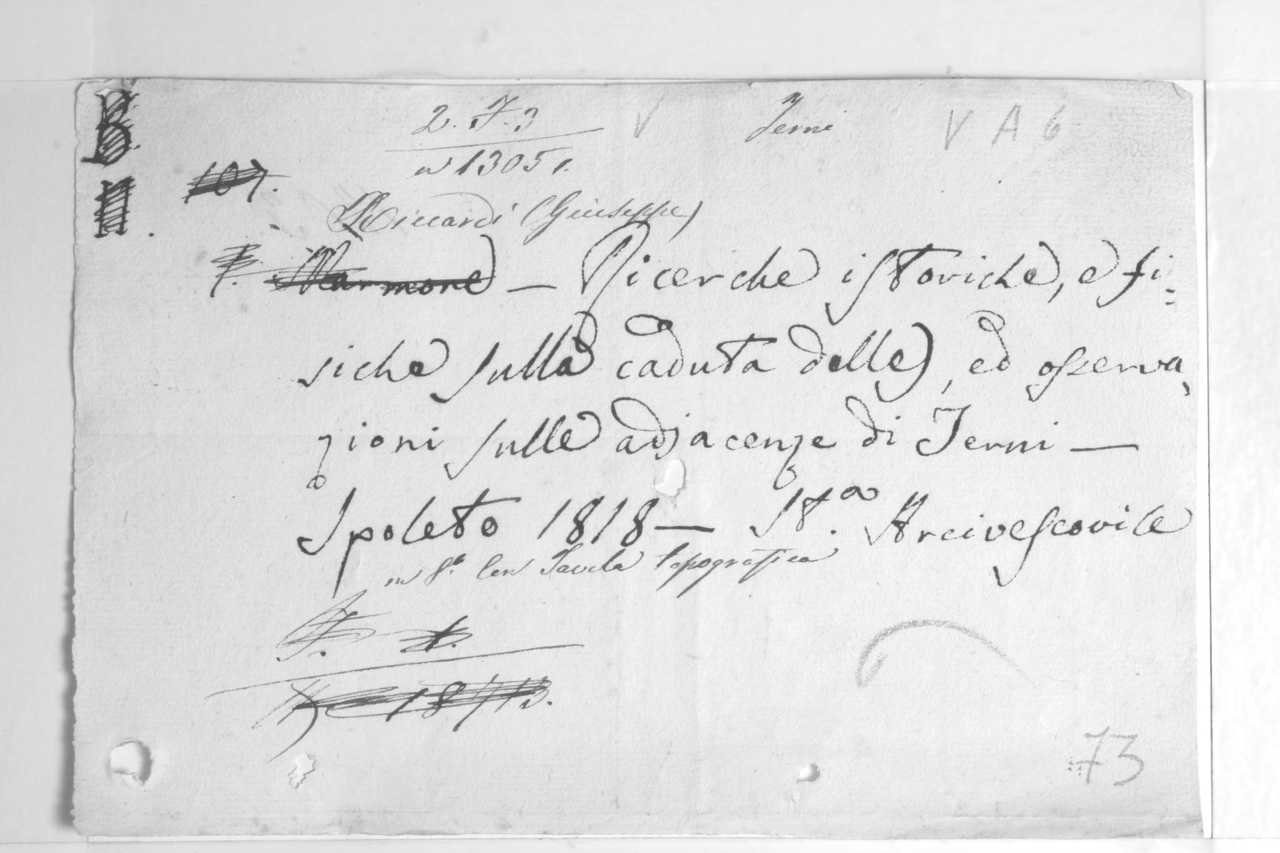 B
2. F. 3 V Terni V A 6
107.
n 13051.
Riccardi (Giuseppe)
Marmore — Ricerche istoriche, e fi=
siche sulla caduta delle), ed osserva,
zioni sulle adjacenze di Terni —
Spoleto 1818 — St.ª Arcivescovile
in 8.º con Tavola topografica
73